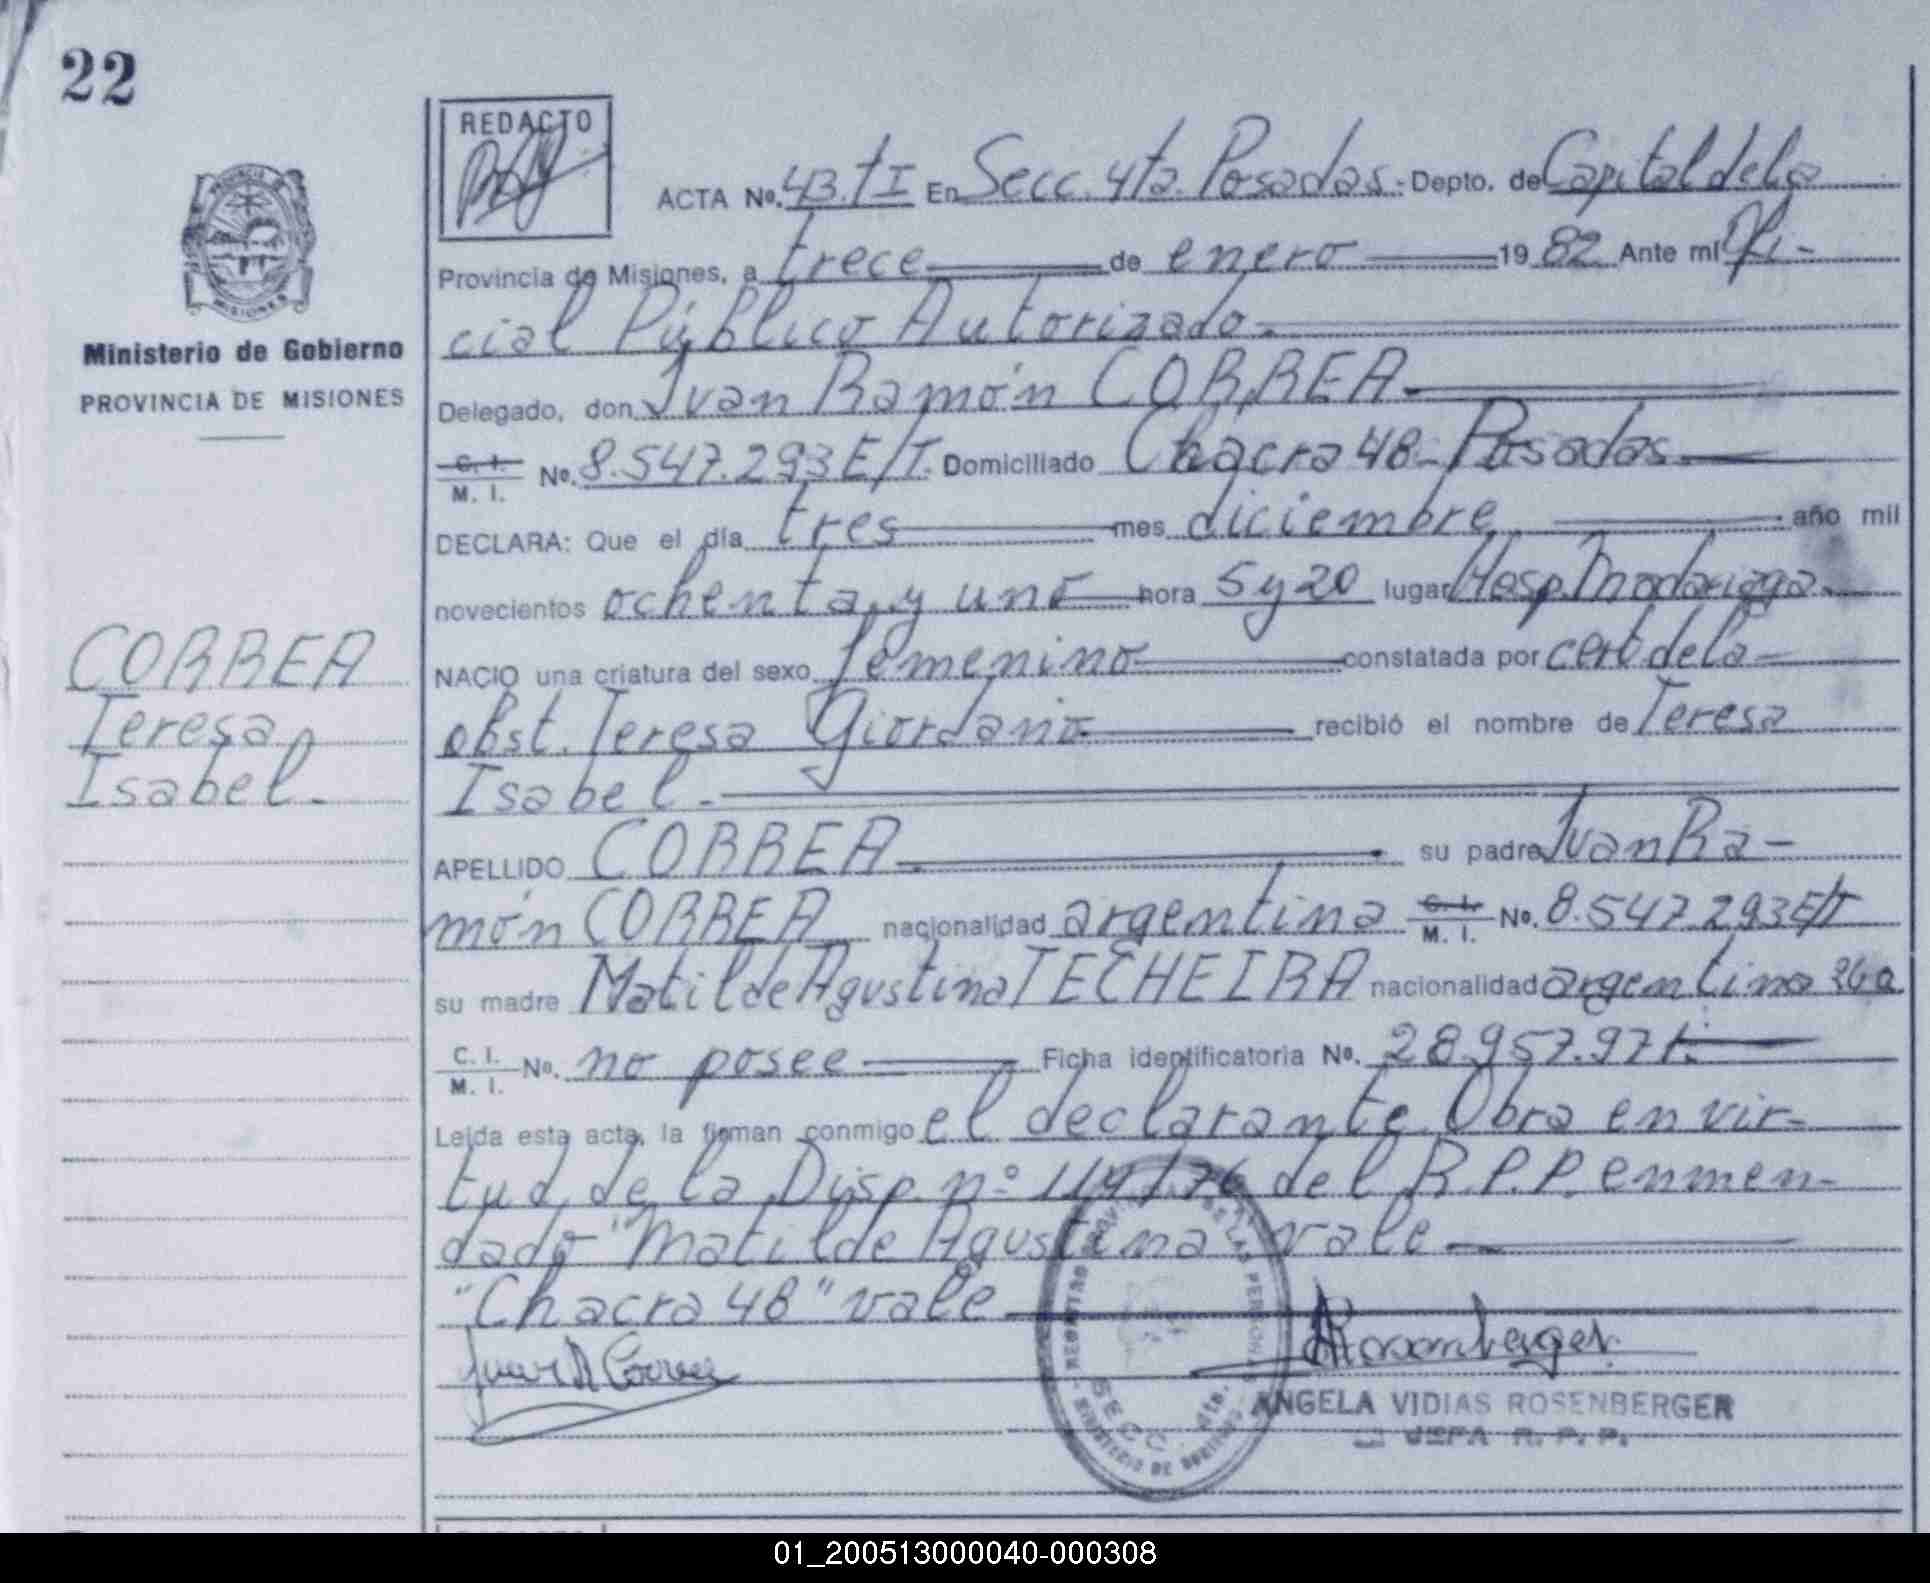 22
REDACTO
PROVINCIA DE
MISIONES
Ministerio de Gobierno
PROVINCIA DE MISIONES
CORREA
Teresa
Isabel.-
ACTA No. 43. tI En Secc. 4ta. Posadas.- Depto. de Capital de la
Provincia de Misiones, a trece de enero 19 82 Ante mí Ofi-
cial Público Autorizado.-
Delegado, don Juan Ramón CORREA.-
C. I. M. I. No. 8.547.293 E/T. Domiciliado Chacra 48- Posadas.
DECLARA: Que el día tres mes diciembre año mil
novecientos ochenta y uno hora 5 y 20 lugar Hosp. Madariaga.
NACIO una criatura del sexo femenino constatada por cert. de la
obst. Teresa Giordano recibió el nombre de Teresa
Isabel.-
APELLIDO CORREA. su padre Juan Ra-
món CORREA nacionalidad argentina C. I. M. I. No. 8.547.293 E/T
su madre Matilde Agustina TECHEIRA nacionalidad argentina 26 a
C. I. M. I. No. no posee Ficha identificatoria No. 28.957.97
Leida esta acta, la firman conmigo el declarante. Obra en vir-
tud de la Disp. nº 119/76 del R.P.P. enmen-
dado "Matilde Agustina vale
"Chacra 48" vale
Juan R Correa
Rosemberger
REGISTRO PROV. DE LAS PERSONAS
SECC. 4ta.
MINISTERIO DE GOBIERNO
ANGELA VIDIAS ROSENBERGER
JEFA R. P. P.
01_200513000040-000308